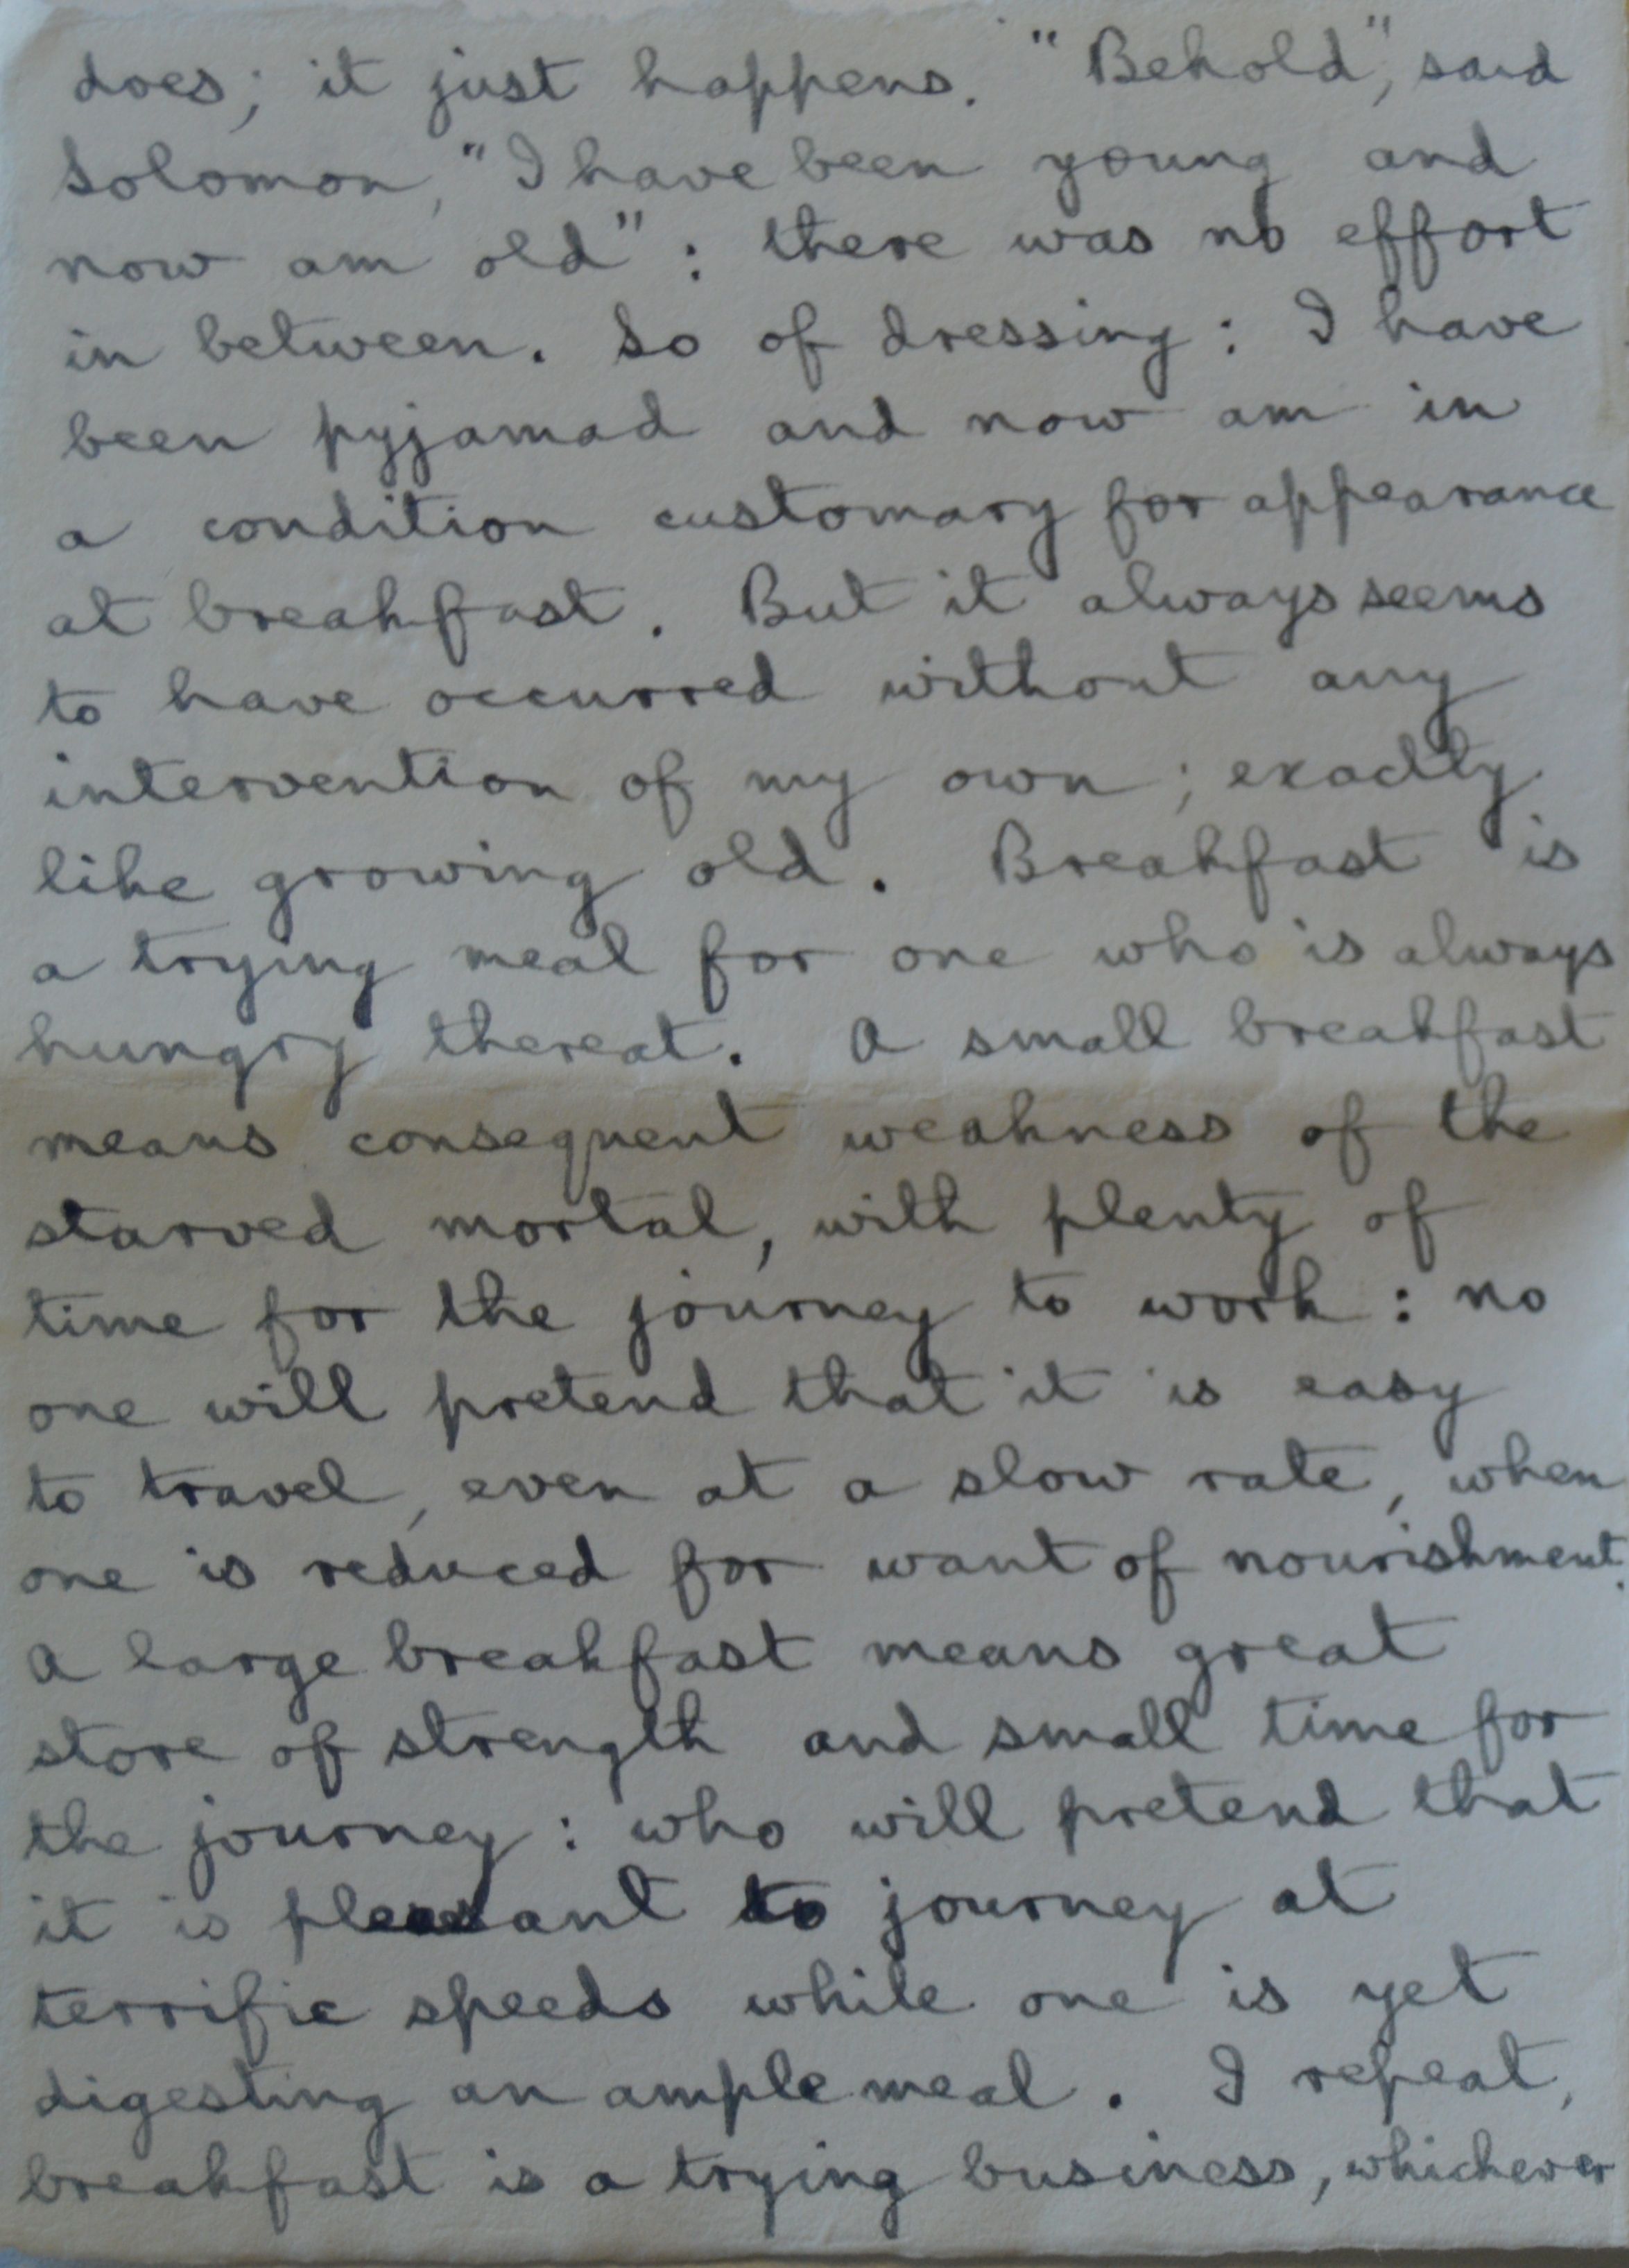 does; it just happens. "Behold", said
Solomon, "I have been young and
now am old" : there was no effort
in between. So of dressing : I have
been pyjamad and now am in
a condition customary for appearance
at breakfast. But it always seems
to have occurred without any
intervention of my own ; exactly
like growing old. Breakfast is
a trying meal for one who is always
hungry thereat. A small breakfast
means consequent weakness of the
starved mortal, with plenty of
time for the journey to work : no
one will pretend that it is easy
to travel, even at a slow rate, when
one is reduced for want of nourishment.
A large breakfast means great
store of strength and small time for
the journey : who will pretend that
it is pleasant to journey at
terrific speeds while one is yet
digesting an ample meal. I repeat,
breakfast is a trying business, whichever